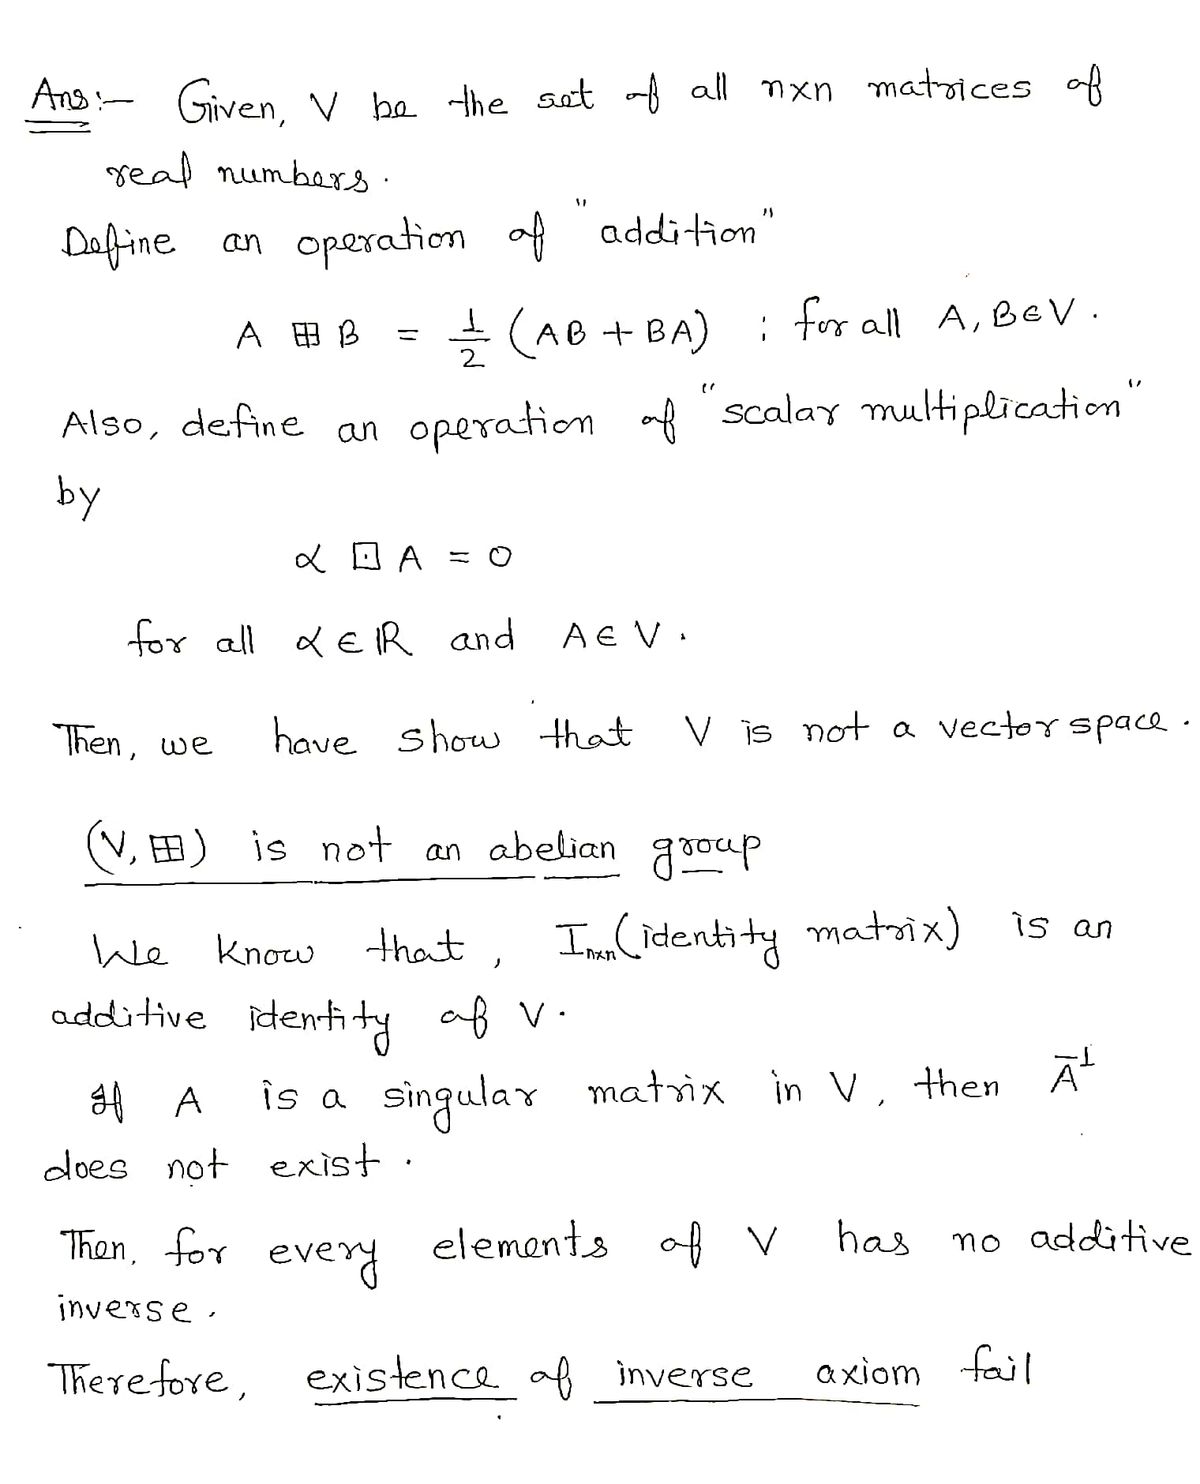 Ans:- Given, V be the set of all nxn matrices of
real numbers.
Define an operation of "addition"
A ⊞ B = 1/2 (AB + BA) ; for all A, B∈V.
Also, define an operation of "scalar multiplication"
by
α ⊡ A = 0
for all α∈ℝ and A∈V.
Then, we have show that V is not a vector space.
(V, ⊞) is not an abelian group
We know that, Iₙₓₙ(identity matrix) is an
additive identity of V.
If A is a singular matrix in V, then A⁻¹
does not exist.
Then, for every elements of V has no additive
inverse.
Therefore, existence of inverse axiom fail